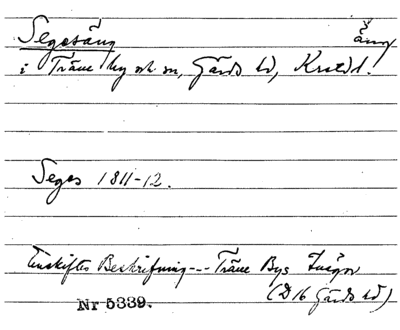 Segesäng äng
i Träne by och sn, Gärds hd, Krstds l.
Seges 1811-12.
Enskiftes Beskrifning --- Träne Bys Inägor
(D 16 Gärds hd)
Nr 5339.